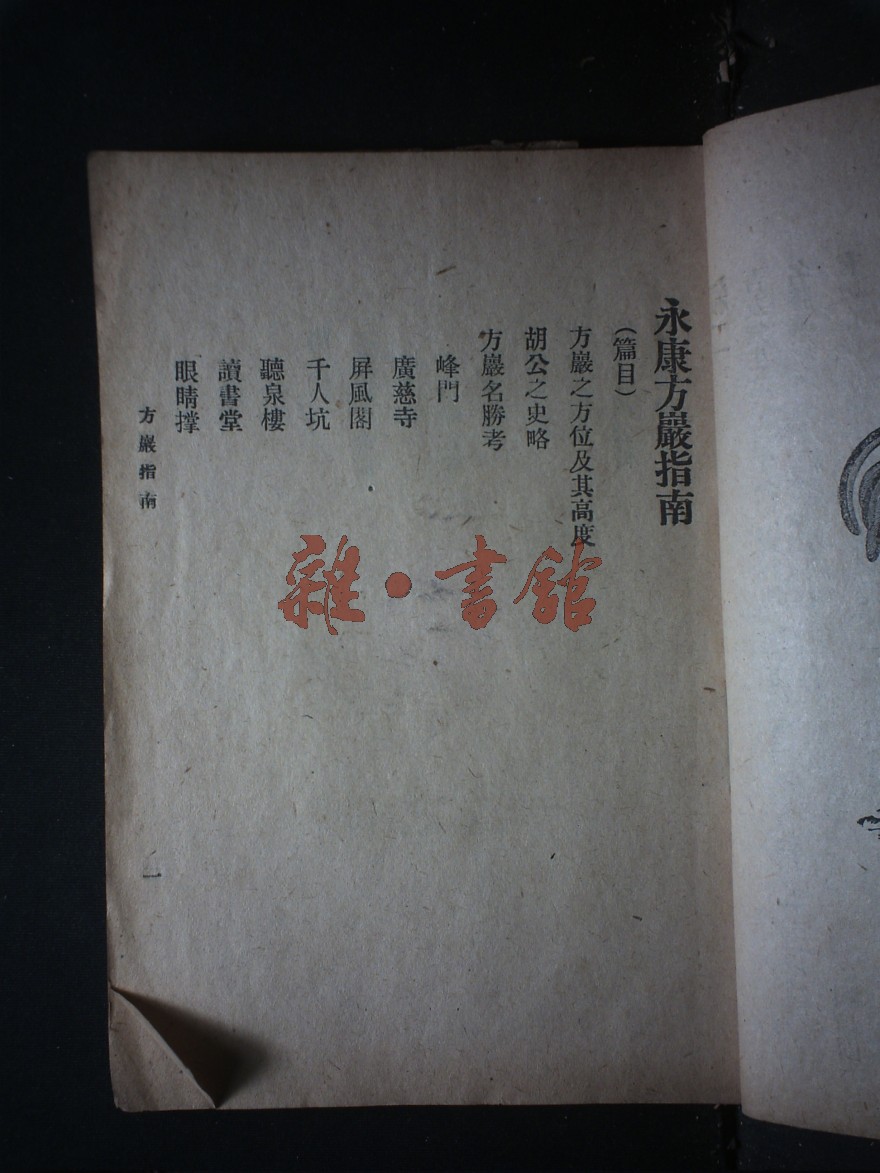 永康方巖指南
（篇目）
方巖之方位及其高度
胡公之史略
方巖名勝考
峰門
廣慈寺
屏風閣
千人坑
聽泉樓
讀書堂
眼睛撑
方巖指南
一
雜·書舘